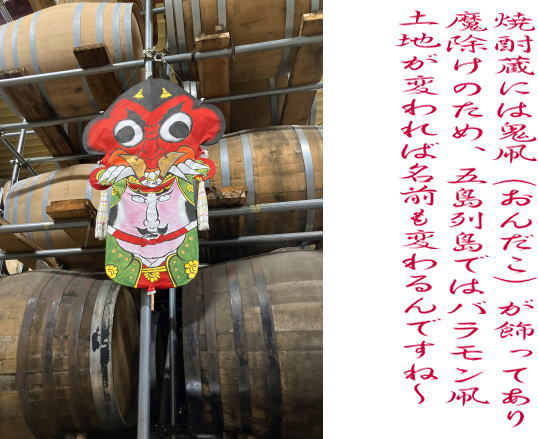 焼酎蔵には鬼凧（おんだこ）が飾ってあり
魔除けのため、五島列島ではバラモン凧
土地が変われば名前も変わるんですね～